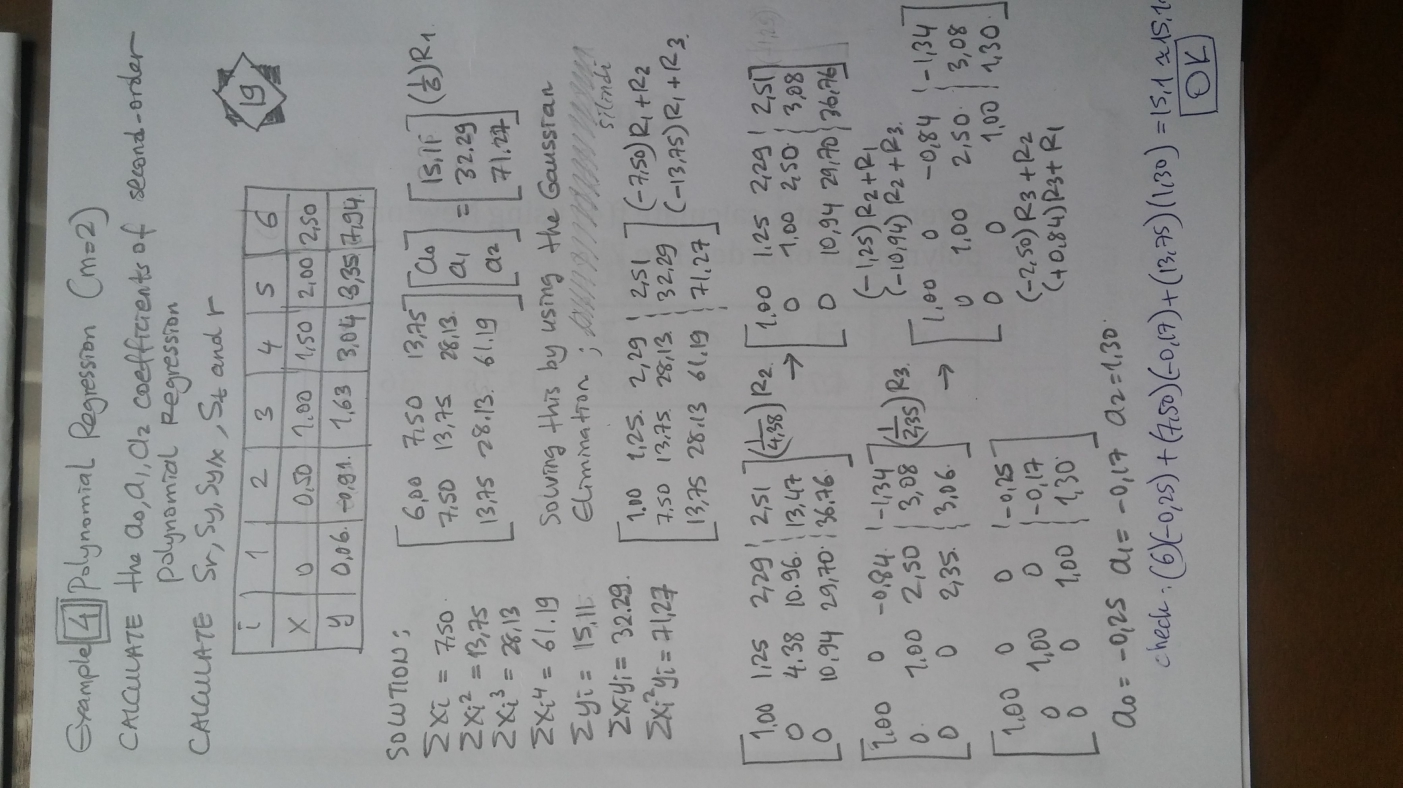 Example [4] Polynomial Regression (m=2)
CALCULATE the a0, a1, a2 coefficients of second-order
polynomial Regression
CALCULATE Sr, Sy, Sy/x, St and r
19
i 1 2 3 4 5 6
x 0 0,50 1,00 1,50 2,00 2,50
y 0,06 -0,91 1,63 3,04 3,35 7,94
SOLUTION;
Σxi = 7,50
Σxi² = 13,75
Σxi³ = 28,13
Σxi⁴ = 61.19
Σyi = 15,11
Σxiyi = 32.29
Σxi²yi = 71,27
[6,00 7,50 13,75] [a0] = [15,11] (1/6)R1
[7,50 13,75 28,13] [a1] [32.29]
[13,75 28,13 61.19] [a2] [71.27]
Solving this by using the Gaussian
Elimination;
silindi
[1,00 1,25 2,29 ¦ 2,51] (-7,50)R1+R2
[7,50 13,75 28,13 ¦ 32,29] (-13,75)R1+R3
[13,75 28,13 61,19 ¦ 71,27]
[1,00 1,25 2,29 ¦ 2,51] (1/4,38)R2 → [1,00 1,25 2,29 ¦ 2,51]
[0 4.38 10.96 ¦ 13,47] [0 1,00 2,50 ¦ 3,08]
[0 10,94 29,70 ¦ 36.76] [0 10,94 29,70 ¦ 36,76]
(-1,25)R2+R1
(-10,94)R2+R3
[1,00 0 -0,84 ¦ -1,34] (1/2,35)R3 → [1,00 0 -0,84 ¦ -1,34]
[0 1,00 2,50 ¦ 3,08] [0 1,00 2,50 ¦ 3,08]
[0 0 2,35 ¦ 3,06] [0 0 1,00 ¦ 1,30]
(-2,50)R3+R2
(+0,84)R3+R1
[1,00 0 0 ¦ -0,25]
[0 1,00 0 ¦ -0,17]
[0 0 1,00 ¦ 1,30]
a0 = -0,25 a1 = -0,17 a2 = 1,30
check: (6)(-0,25)+(7,50)(-0,17)+(13,75)(1,30) = 15,1 ≈ 15,1
OK